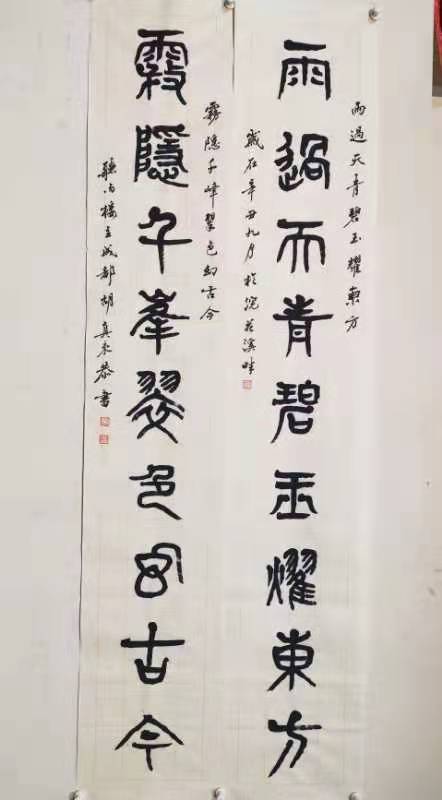 雨過天青碧玉耀東方
雨過天青碧玉耀東方
歲在辛丑九月於浣花溪畔
霧隱千峰翠色幻古今
霧隱千峯翠色幻古今
聽雨樓主成都胡真來恭書